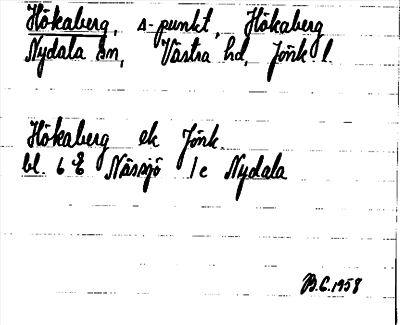 Hökaberg, s-punkt, Hökaberg
Nydala sn, Västra hd, Jönk l.
Hökaberg ek Jönk.
bl. 6 E Nässjö 1c Nydala
B.C. 1958